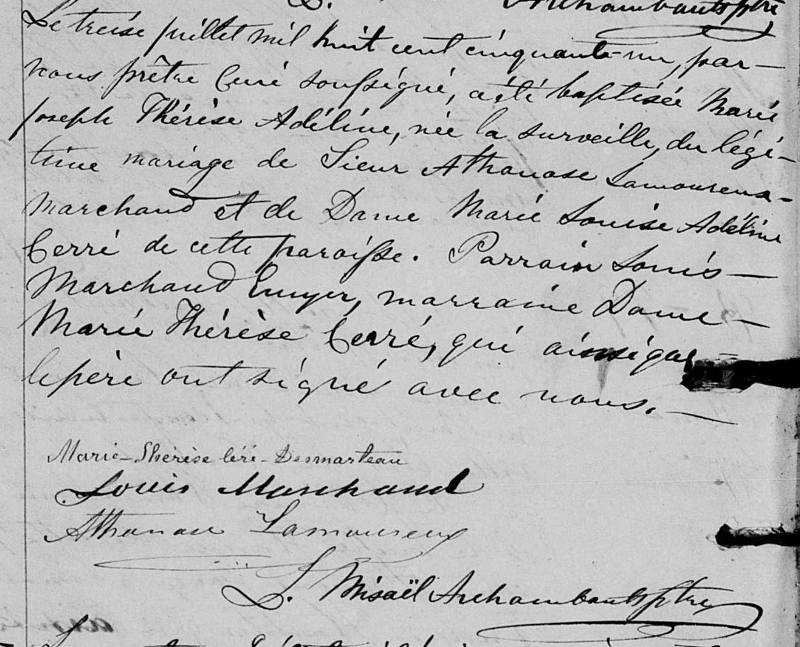 L. Archambault ptre
Le treize juillet mil huit cent cinquante-un, par
nous prêtre Curé soussigné, a été baptisée Marie
Joseph Thérèse Adéline, née la surveille, du légi-
time mariage de Sieur Athanase Lamoureux
Marchand et de Dame Marie Louise Adéline
Cerré de cette paroisse. Parrain Louis
Marchaud Ecuyer, marraine Dame
Marie Thérèse Cerré, qui ainsi que
le père ont signé avec nous.
Marie-Thérèse Céré-Desmarteau
Louis Marchand
Athanase Lamoureux
L. Misaël Archambault ptre